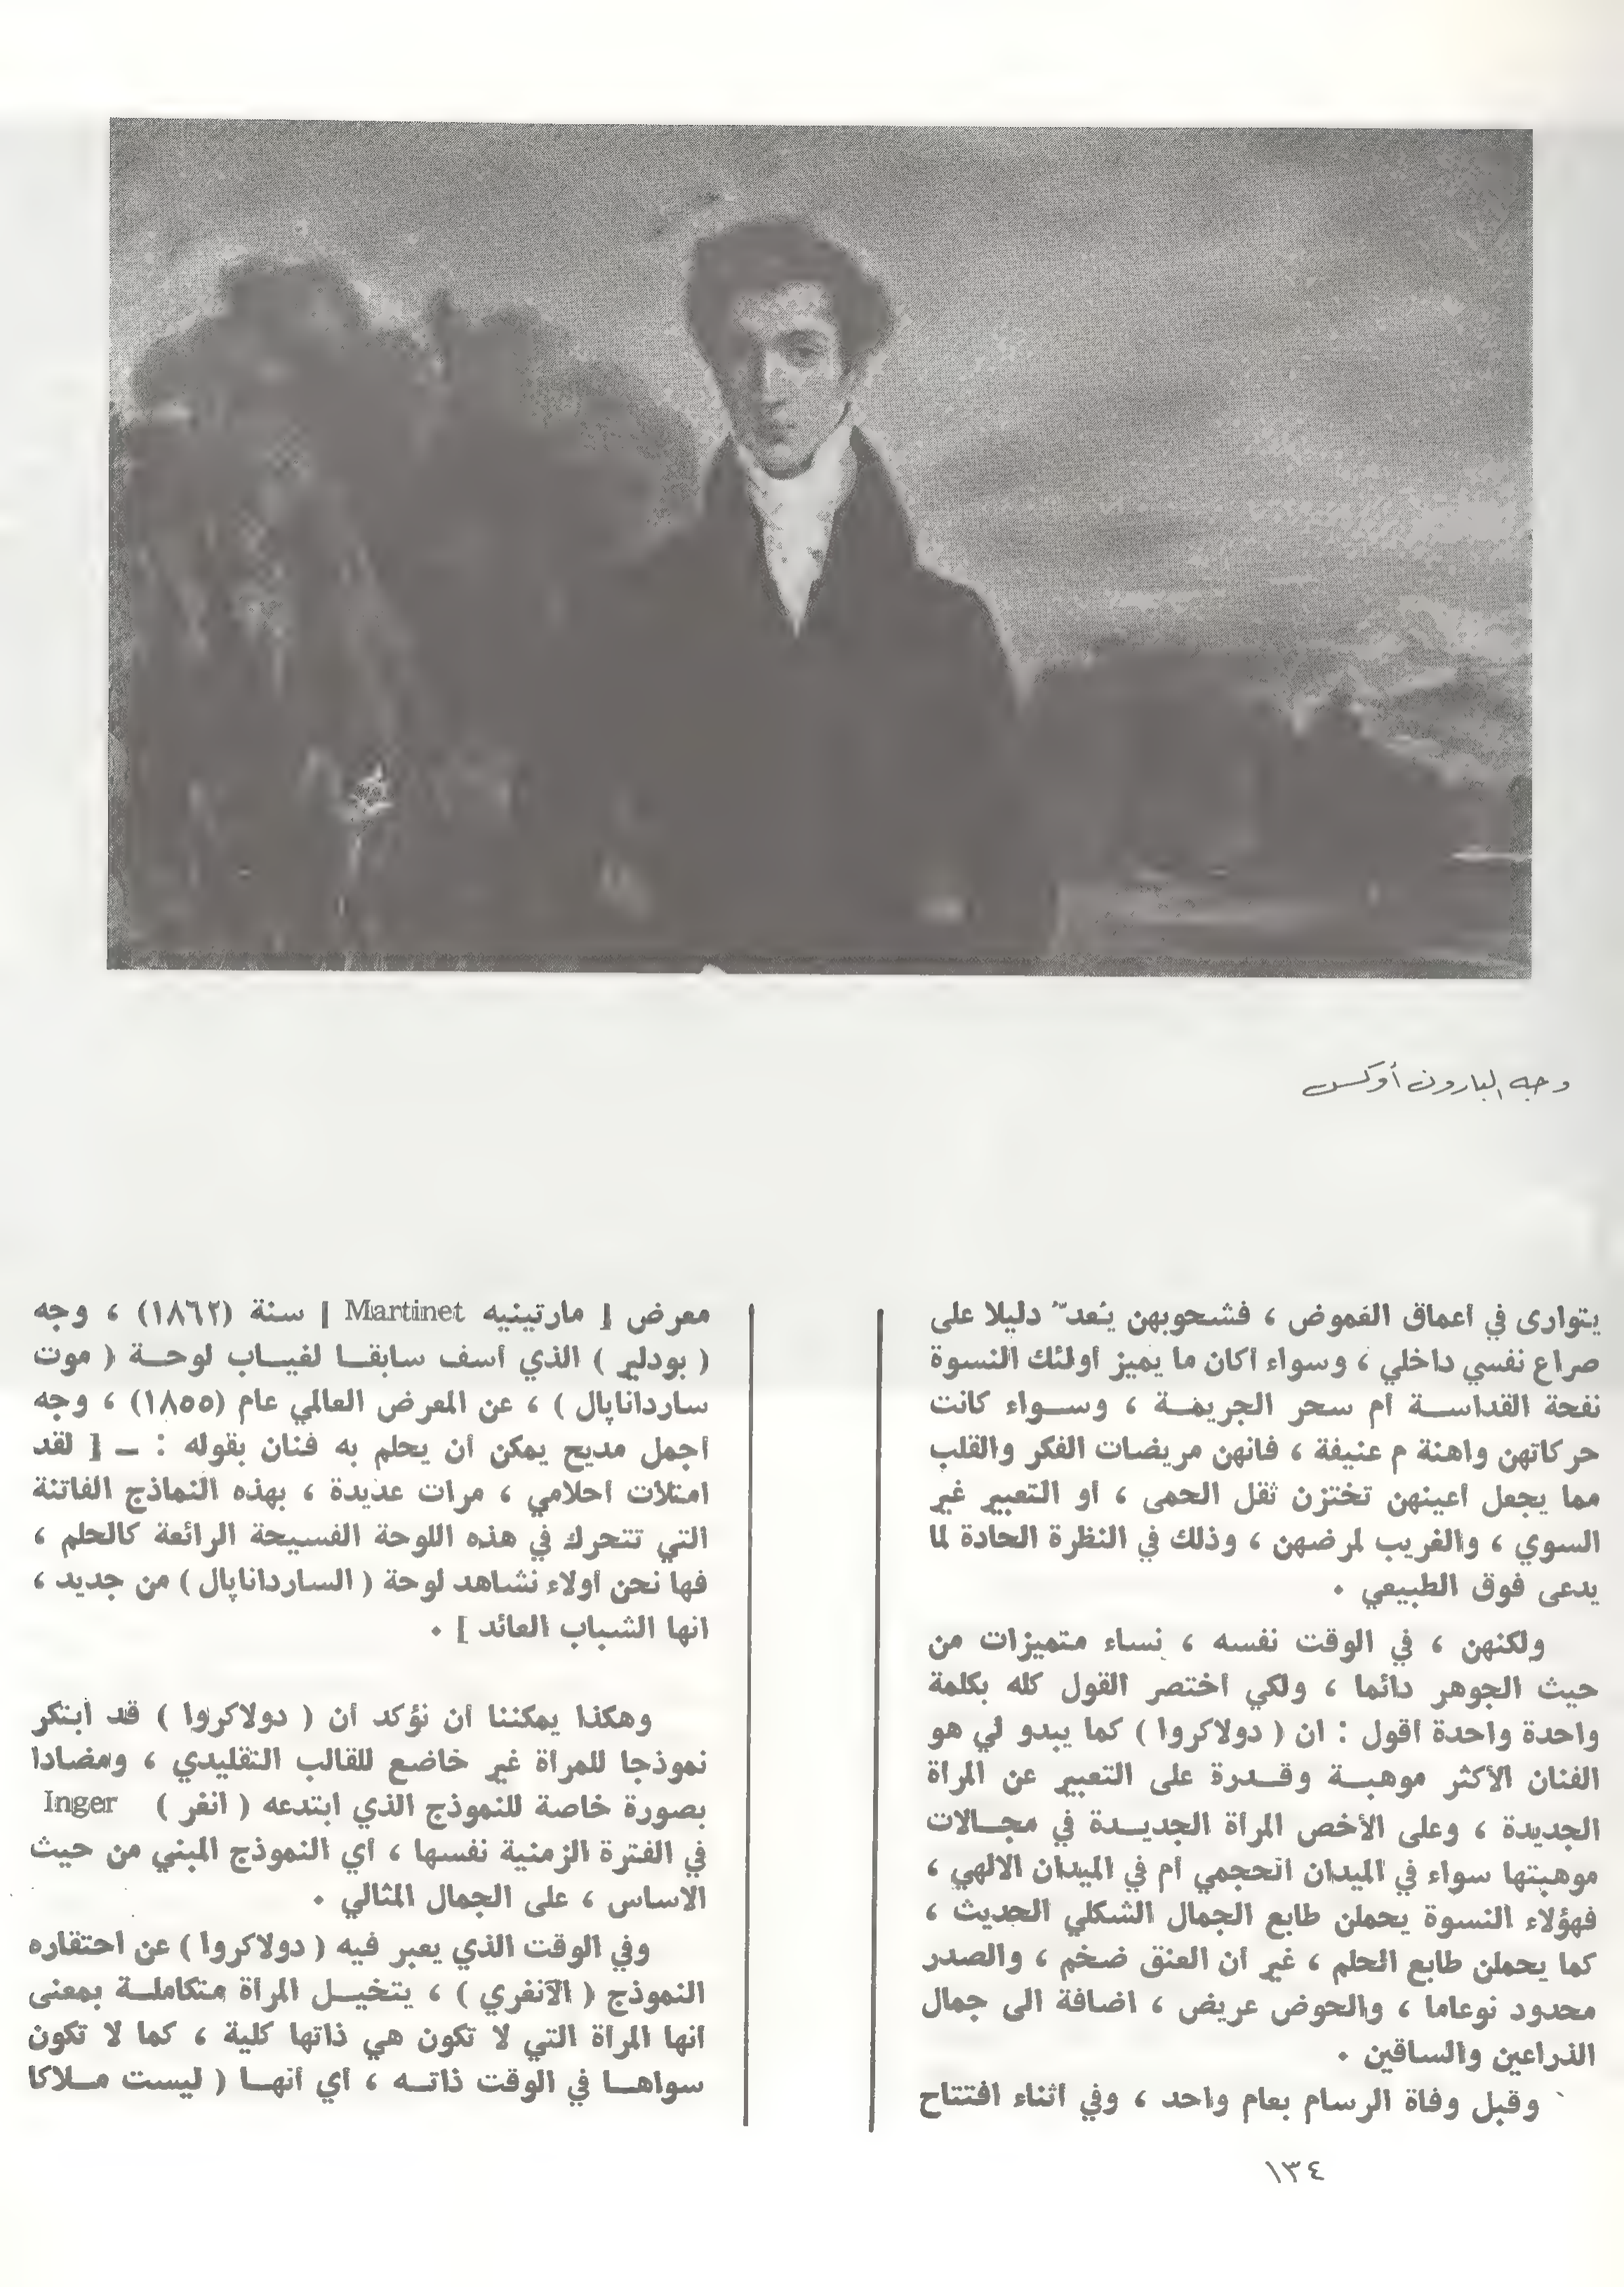 وجه البارون أوكس
يتوارى في أعماق الغموض ، فشحوبهن يُعدّ دليلا على
صراع نفسي داخلي ، وسواء أكان ما يميز أولئك النسوة
نفحة القداسة أم سحر الجريمة ، وسواء كانت
حركاتهن واهنة م عنيفة ، فانهن مريضات الفكر والقلب
مما يجعل أعينهن تختزن ثقل الحمى ، أو التعبير غير
السوي ، والغريب لمرضهن ، وذلك في النظرة الحادة لما
يدعى فوق الطبيعي .
ولكنهن ، في الوقت نفسه ، نساء متميزات من
حيث الجوهر دائما ، ولكي أختصر القول كله بكلمة
واحدة واحدة أقول : ان ( دولاكروا ) كما يبدو لي هو
الفنان الأكثر موهبة وقدرة على التعبير عن المرأة
الجديدة ، وعلى الأخص المرأة الجديدة في مجالات
موهبتها سواء في الميدان الحجمي أم في الميدان الالهي ،
فهؤلاء النسوة يحملن طابع الجمال الشكلي الحديث ،
كما يحملن طابع الحلم ، غير أن العنق ضخم ، والصدر
محدود نوعاما ، والحوض عريض ، اضافة الى جمال
الذراعين والساقين .
وقبل وفاة الرسام بعام واحد ، وفي أثناء افتتاح
معرض [ مارتينيه Martinet ] سنة (١٨٦٢) ، وجه
( بودلير ) الذي أسف سابقا لغياب لوحة ( موت
ساردانابال ) ، عن المعرض العالمي عام (١٨٥٥) ، وجه
أجمل مديح يمكن أن يحلم به فنان بقوله : ـ [ لقد
امتلأت أحلامي ، مرات عديدة ، بهذه النماذج الفاتنة
التي تتحرك في هذه اللوحة الفسيحة الرائعة كالحلم ،
فها نحن أولاء نشاهد لوحة ( الساردانابال ) من جديد ،
انها الشباب العائد ] .
وهكذا يمكننا أن نؤكد أن ( دولاكروا ) قد ابتكر
نموذجا للمرأة غير خاضع للقالب التقليدي ، ومضادا
بصورة خاصة للنموذج الذي ابتدعه ( انغر ) Inger
في الفترة الزمنية نفسها ، أي النموذج المبني من حيث
الاساس ، على الجمال المثالي .
وفي الوقت الذي يعبر فيه ( دولاكروا ) عن احتقاره
النموذج ( الآنغري ) ، يتخيل المرأة متكاملة بمعنى
انها المرأة التي لا تكون هي ذاتها كلية ، كما لا تكون
سواها في الوقت ذاته ، أي أنها ( ليست ملاكا
١٣٤